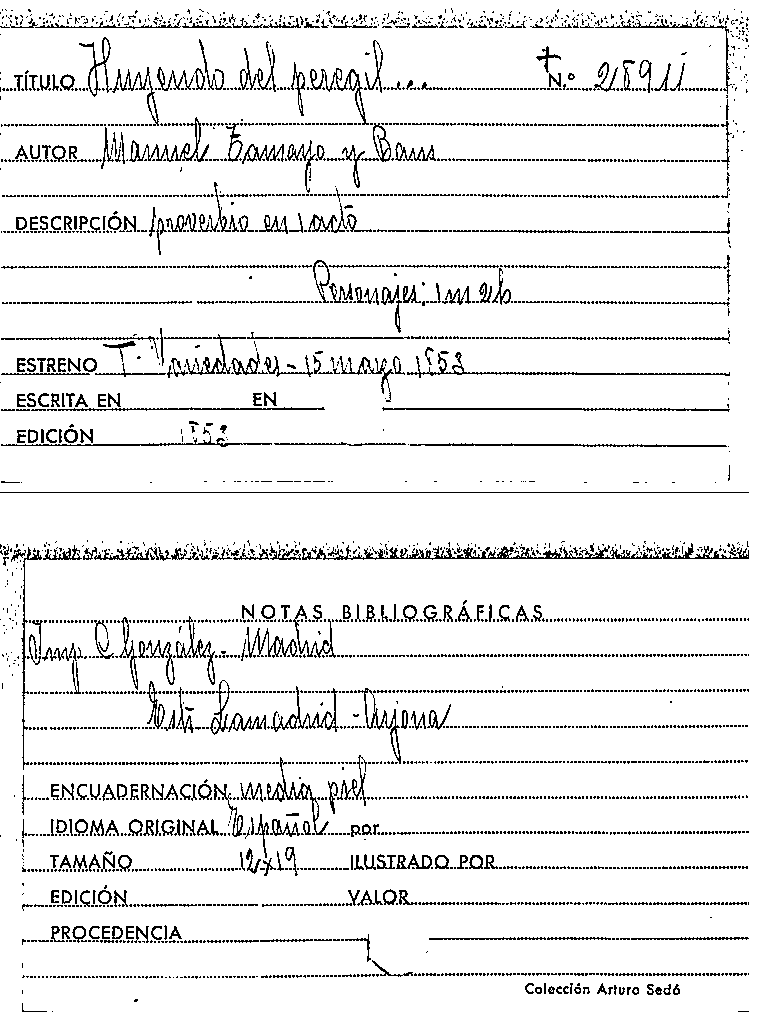 TÍTULO Huyendo del peregil... N.º 28911
AUTOR Manuel Tamayo y Baus
DESCRIPCIÓN proverbio en 1 acto
Personajes: 1m 2h
ESTRENO T. Variedades - 15 mayo 1853
ESCRITA EN EN
EDICIÓN 1853
NOTAS BIBLIOGRÁFICAS
Imp C González - Madrid
Lamadrid - Arjona
ENCUADERNACIÓN media piel
IDIOMA ORIGINAL Español por
TAMAÑO 12x19 ILUSTRADO POR
EDICIÓN VALOR
PROCEDENCIA
Colección Arturo Sedó